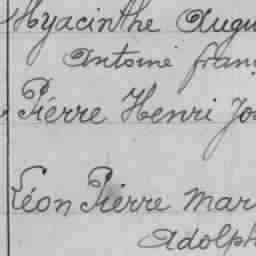 Hyacinthe Augu
Antoine franç
Pierre Henri Jo
Léon Pierre Mar
Adolph